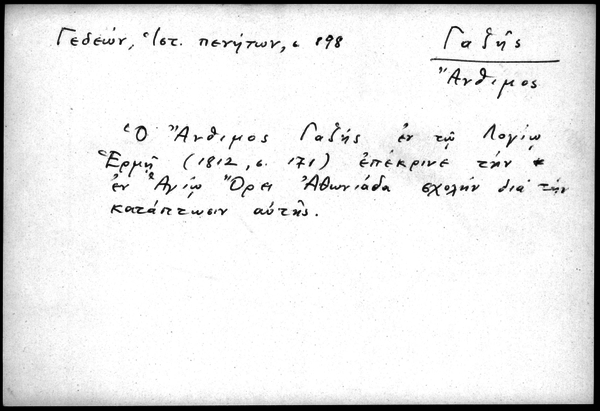 Γεδεών, Ἱστ. πενήτων, σ. 198
Γαζῆς
Ἄνθιμος
Ὁ Ἄνθιμος Γαζῆς ἐν τῷ Λογίῳ
Ἑρμῇ (1812, σ. 171) ἐπέκρινε τὴν
ἐν Ἁγίῳ Ὄρει Ἀθωνιάδα σχολὴν διὰ τὴν
κατάπτωσιν αὐτῆς.